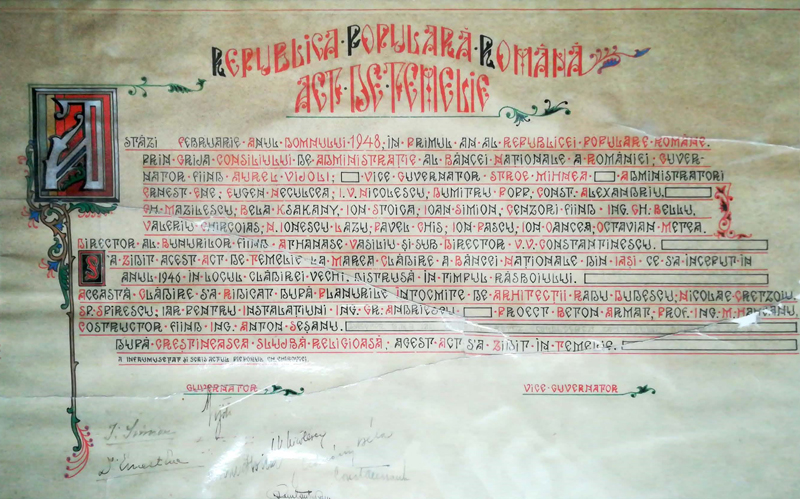 REPUBLICA·POPULARĂ·ROMÂNĂ
ACT·DE·TEMELIE
ASTĂZI FEBRUARIE·ANUL·DOMNULUI·1948; ÎN·PRIMUL·AN·AL·REPUBLICEI·POPULARE·ROMÂNE.
PRIN·GRIJA·CONSILIULUI·DE·ADMINISTRAȚIE·AL·BĂNCEI·NAȚIONALE·A·ROMÂNIEI; GUVER-
NATOR·FIIND·AUREL·VIJOLI; VICE·GUVERNATOR·STROE·MIHNEA ADMINISTRATORI
ERNEST·ENE; EUGEN·NECULCEA; I.V.NICOLESCU; DUMITRU·POPP; CONST·ALEXANDRIU;
GH·MAZILESCU; BELA·KSAKANY; ION·STOICA; IOAN·SIMION; CENZORI·FIIND·ING·GH·BELLU,
VALERIU·CHIRCOIAS; N.IONESCU·LAZU; PAVEL·CHIȘ; ION·PASCU, ION·OANCEA, OCTAVIAN·METEA.
DIRECTOR·AL·BUNURILOR·FIIND·ATHANASE·VASILIU·ȘI·SUB·DIRECTOR·V.V.CONSTANTINESCU.
SA·ZIDIT·ACEST·ACT·DE·TEMELIE·LA·MAREA·CLĂDIRE·A·BĂNCEI·NAȚIONALE·DIN·IAȘI·CE·SA·ÎNCEPUT·ÎN
ANUL·1946·ÎN·LOCUL·CLĂDIREI·VECHI, DISTRUSĂ·ÎN·TIMPUL·RĂSBOIULUI.
ACEASTĂ·CLĂDIRE·S'A·RIDICAT·DUPĂ·PLANURILE·ÎNTOCMITE·DE·ARHITECȚII·RADU·DUDESCU; NICOLAE·CRETZOIU,
SP·SPIRESCU; IAR·PENTRU·INSTALAȚIUNI·ING·GR·ANDRIESCU PROECT·BETON·ARMAT; PROF·ING·M·HANGANU,
COSTRUCTOR·FIIND·ING·ANTON·SEȘANU.
DUPĂ·CREȘTINEASCA·SLUJBĂ·RELIGIOASĂ; ACEST·ACT·S'A·ZIDIT·ÎN·TEMELIE.
GUVERNATOR VICE·GUVERNATOR